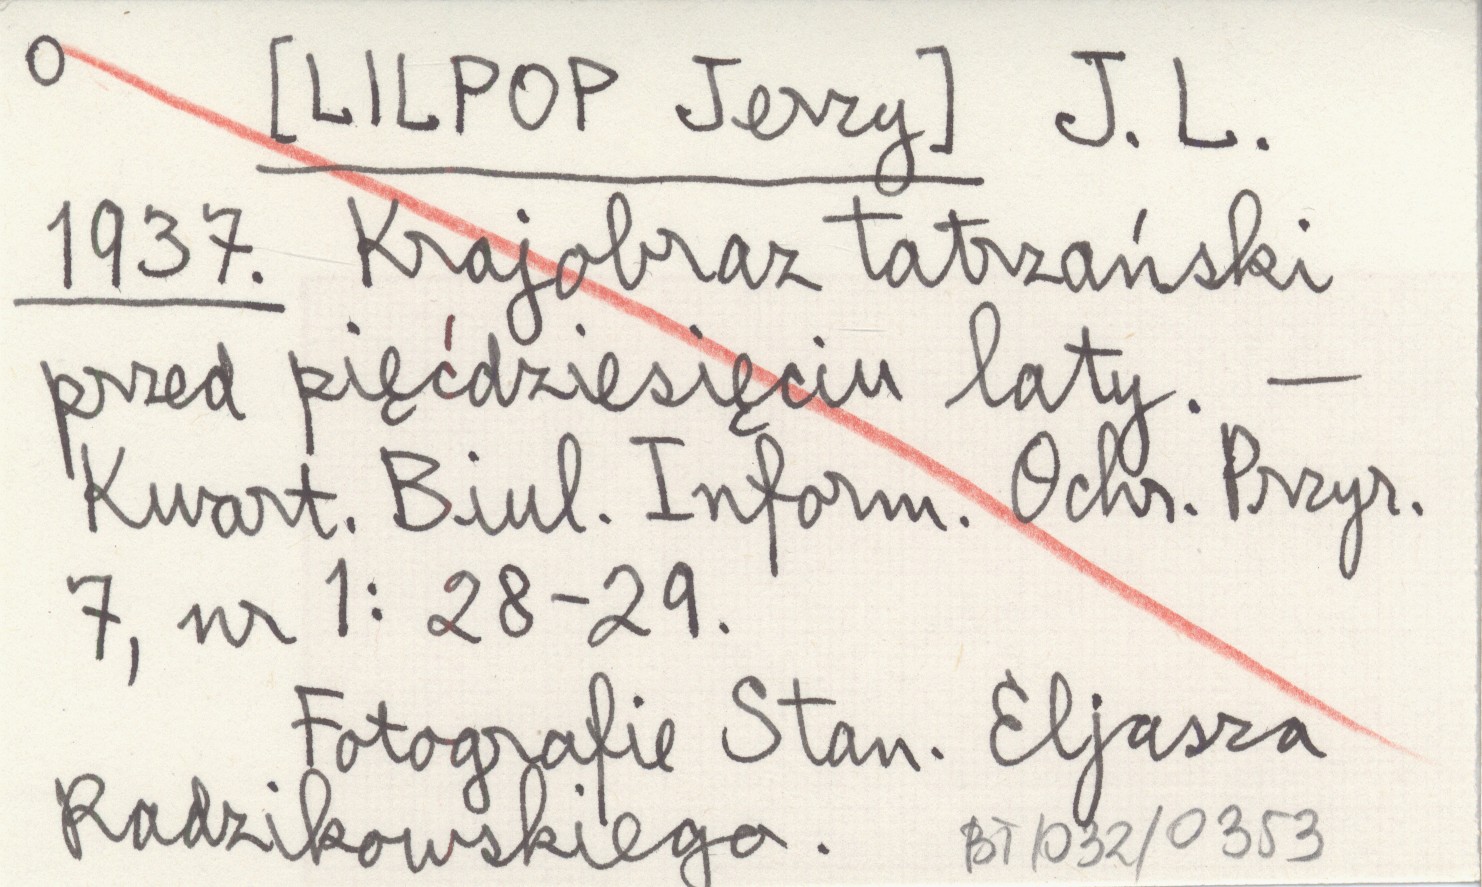 O [LILPOP Jerzy] J. L.
1937. Krajobraz tatrzański
przed pięćdziesięciu laty. —
Kwart. Biul. Inform. Ochr. Przyr.
7, nr 1: 28-29.
Fotografie Stan. Eljasza
Radzikowskiego.
BT/032/0353